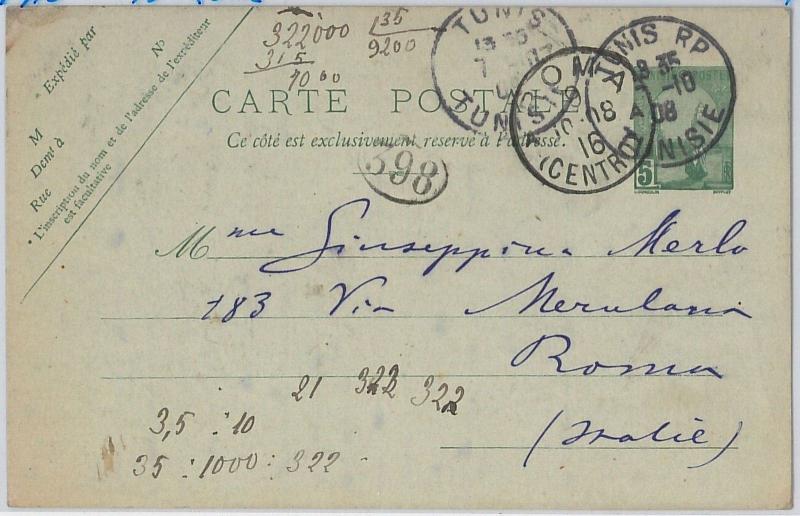 322000 35
315 9200
7000
TUNIS
TUNISIE
ROMA
10.08
16
(CENTRO)
TUNIS RP
8 35
-10
08
TUNISIE
POSTE
5
Nº
Expédié par
M
Demt à
Rue
* L'inscription du nom et de l'adresse de l'expéditeur
est facultative
CARTE POSTALE
Ce côté est exclusivement reservé à l'adresse.
398
Mme Giuseppina Merlo
183 Via Merulana
Roma
(Italie)
21 322 322
3,5 : 10
35 : 1000 : 322